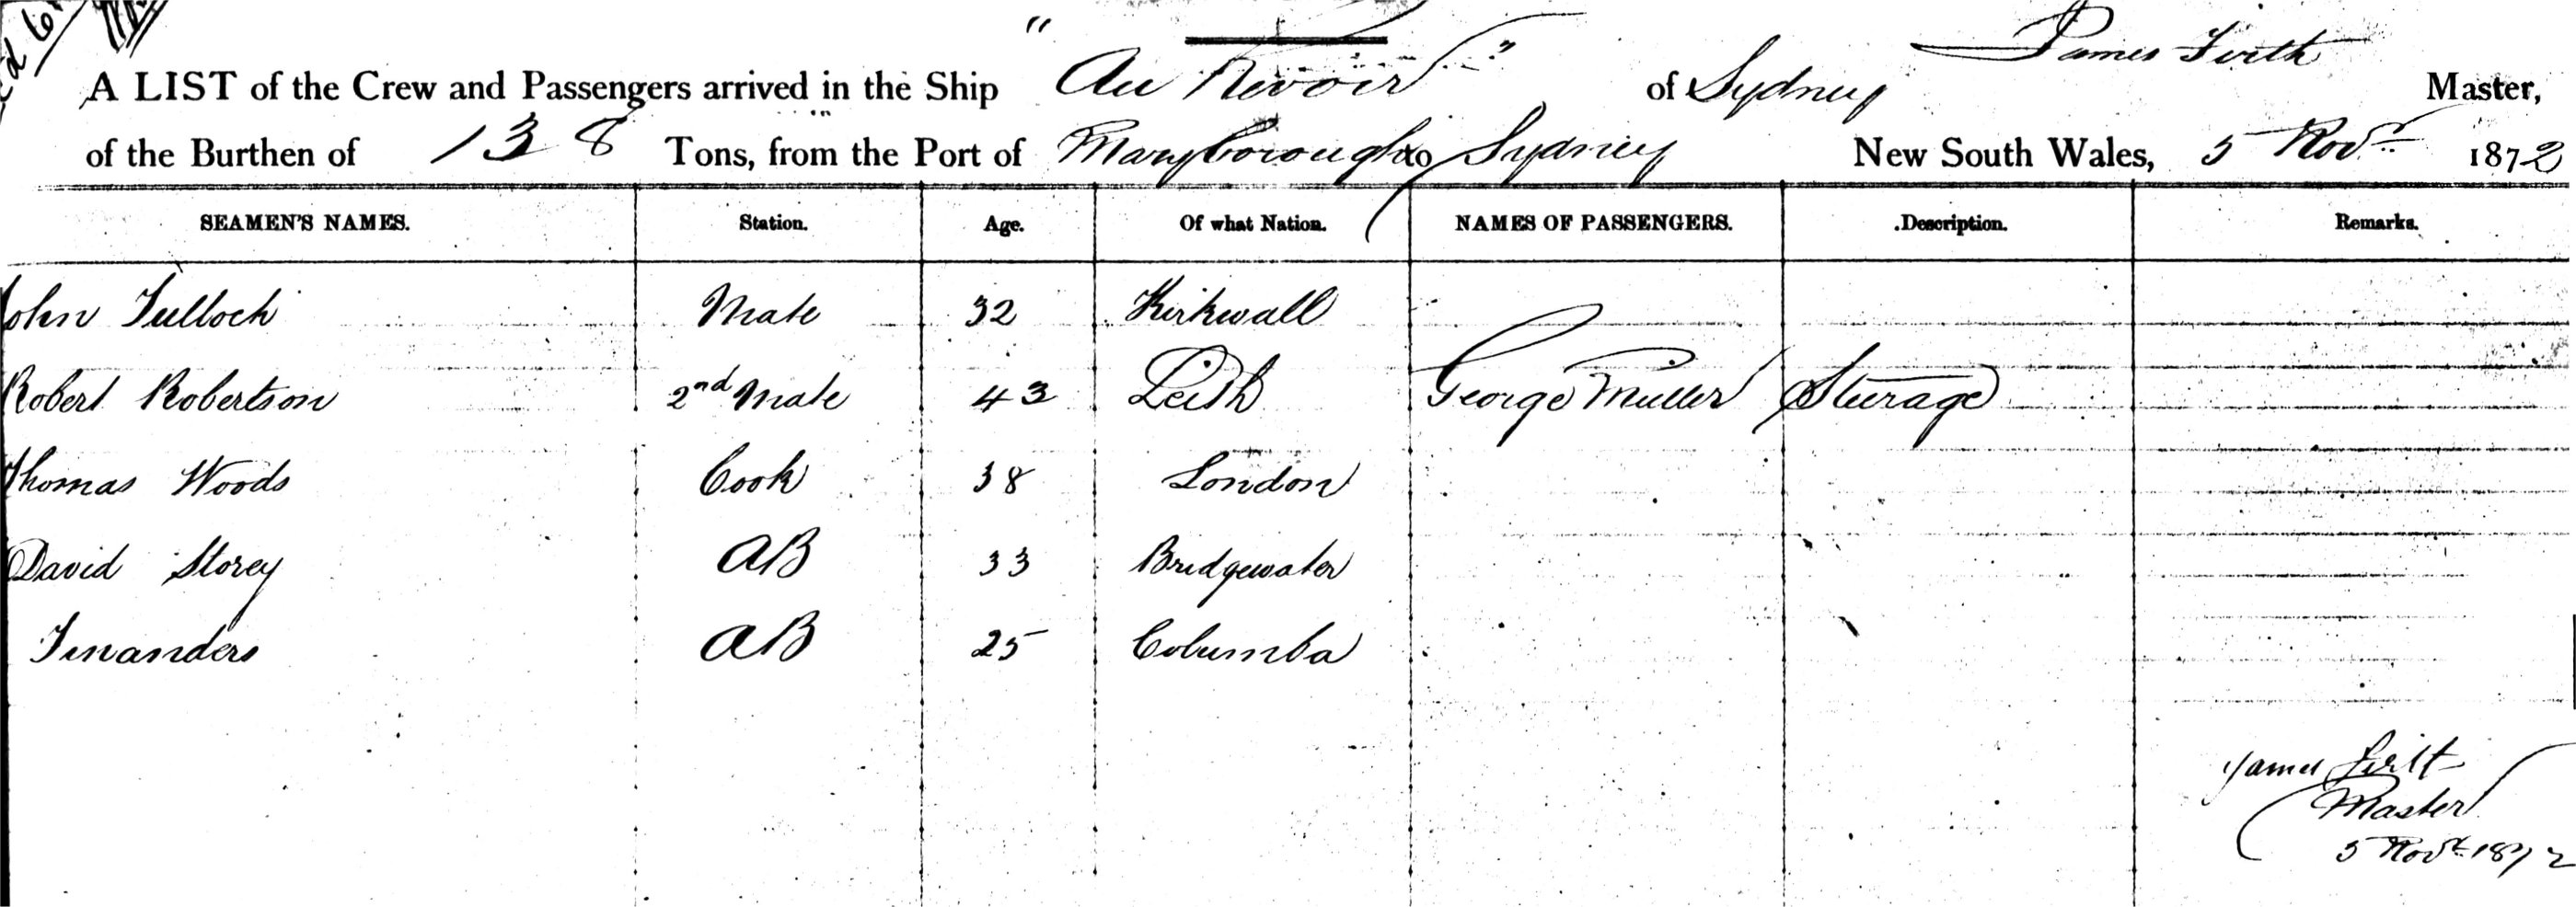 James Firth
A LIST of the Crew and Passengers arrived in the Ship "Au Revoir" of Sydney Master,
of the Burthen of 138 Tons, from the Port of Maryborough to Sydney New South Wales, 5 Novr 1872
SEAMEN'S NAMES. Station. Age. Of what Nation. NAMES OF PASSENGERS. Description. Remarks.
John Tulloch Mate 32 Kirkwall
Robert Robertson 2nd Mate 43 Leith George Muller Steerage
Thomas Woods Cook 38 London
David Storey AB 33 Bridgewater
AB 25 Columba
James Firth
Master
5 Novr 1872